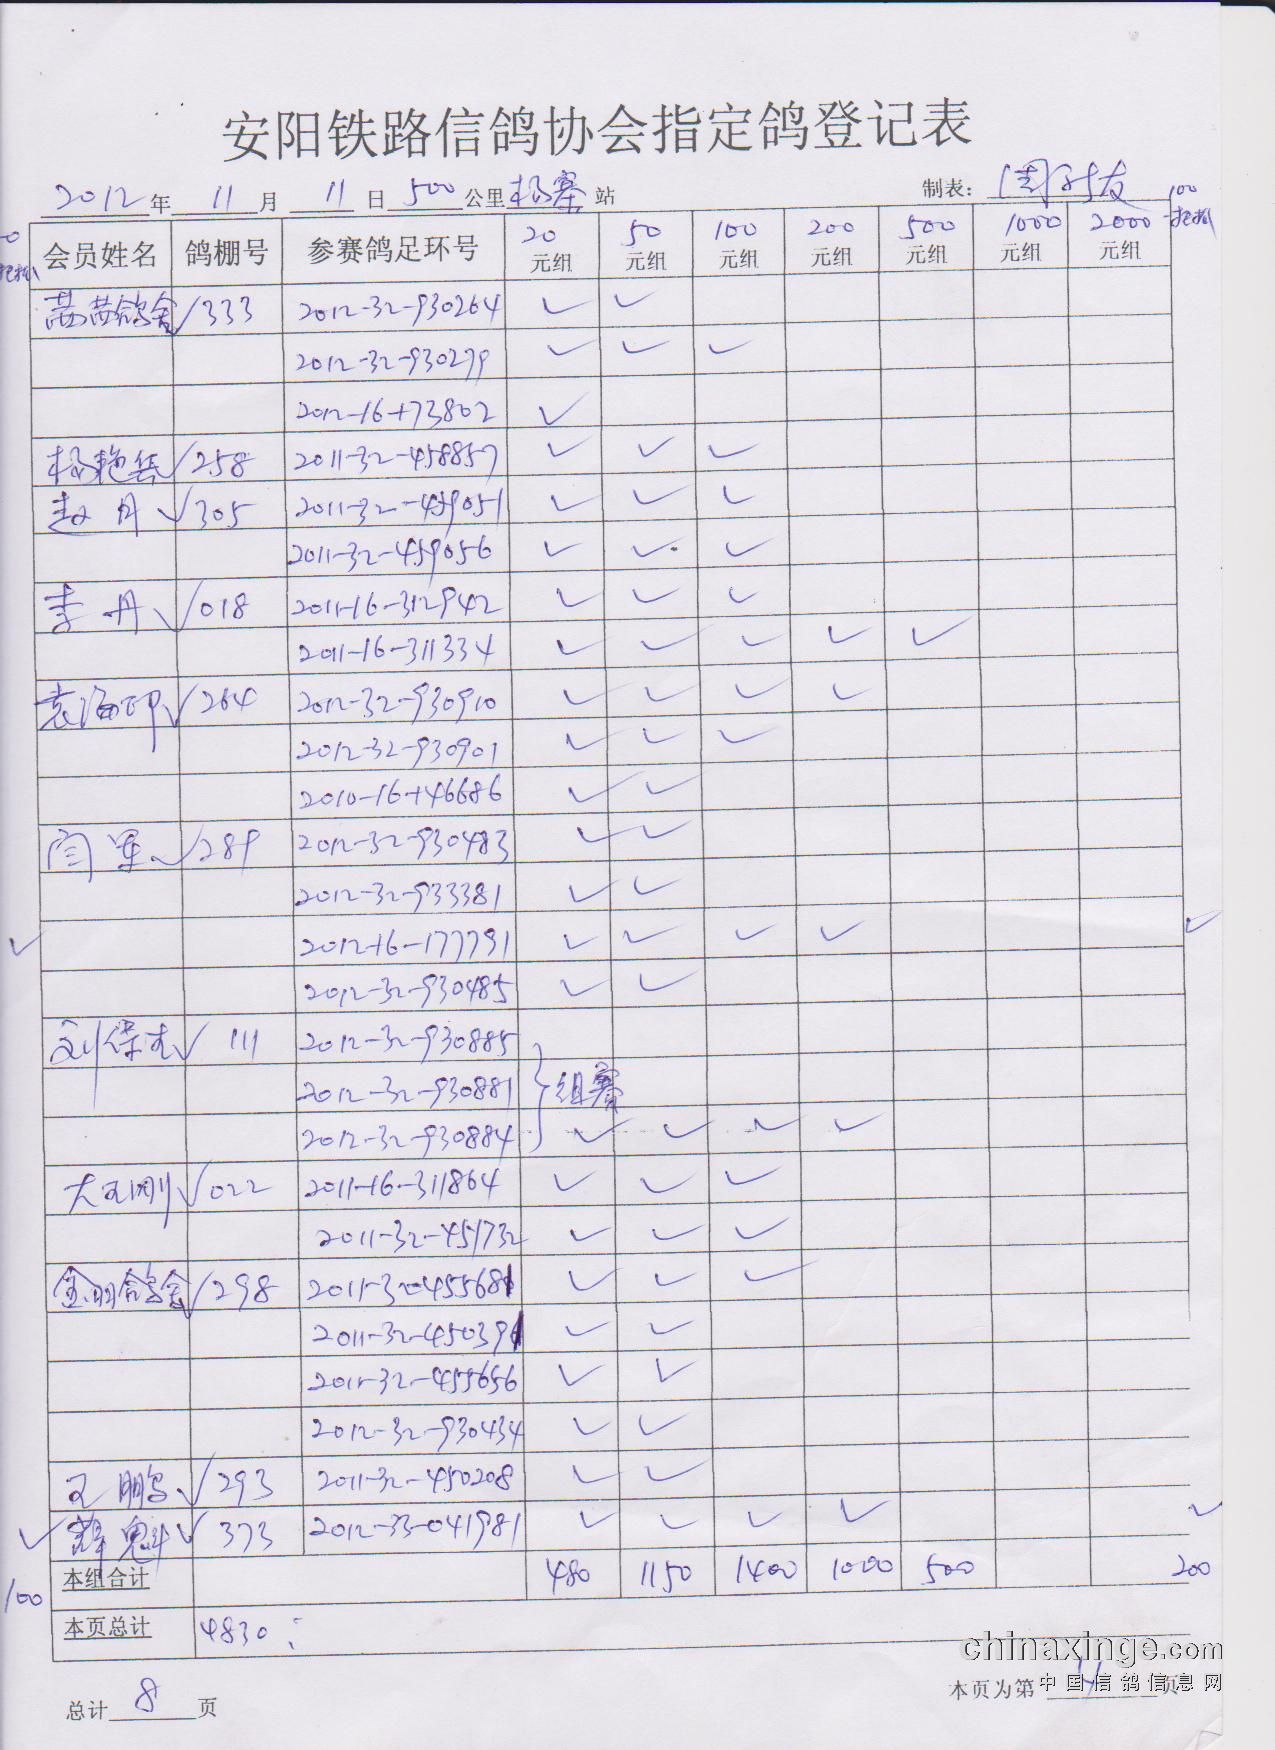 安阳铁路信鸽协会指定鸽登记表
2012年 11月 11日 500公里 杨寨站 制表：
会员姓名 鸽棚号 参赛鸽足环号 20元组 50元组 100元组 200元组 500元组 1000元组 2000元组 100
茜茜鸽舍 ✓ 333 2012-32-930264 ✓ ✓
2012-32-930279 ✓ ✓ ✓
2012-16-173802 ✓
杨艳 ✓ 258 2011-32-458857 ✓ ✓ ✓
赵丹 ✓ 305 2011-32-459051 ✓ ✓ ✓
2011-32-459056 ✓ ✓ ✓
李丹 ✓ 018 2011-16-312942 ✓ ✓ ✓
2011-16-311334 ✓ ✓ ✓ ✓ ✓
袁海印 ✓ 264 2012-32-930910 ✓ ✓ ✓ ✓
2012-32-930901 ✓ ✓ ✓
2010-16-146686 ✓ ✓
闫军 ✓ 289 2012-32-930483 ✓ ✓
2012-32-933381 ✓ ✓
✓ 2012-16-177791 ✓ ✓ ✓ ✓ ✓
2012-32-930485 ✓ ✓
刘保 ✓ 111 2012-32-930885
2012-32-930881 } 组赛
2012-32-930884 ✓ ✓ ✓ ✓
大王刚 ✓ 022 2011-16-311864 ✓ ✓ ✓
2011-32-451732 ✓ ✓ ✓
金明鸽舍 ✓ 298 2011-32-455681 ✓ ✓ ✓
2011-32-450391 ✓ ✓
2011-32-455656 ✓ ✓
2012-32-930434 ✓ ✓
王鹏 ✓ 293 2011-32-450208 ✓ ✓
✓ 薛魁 ✓ 373 2012-33-041981 ✓ ✓ ✓ ✓ ✓
100 本组合计 480 1150 1400 1000 500 200
本页总计 4830
总计 8 页 本页为第 4 页
chinaxinge.com
中国信鸽信息网